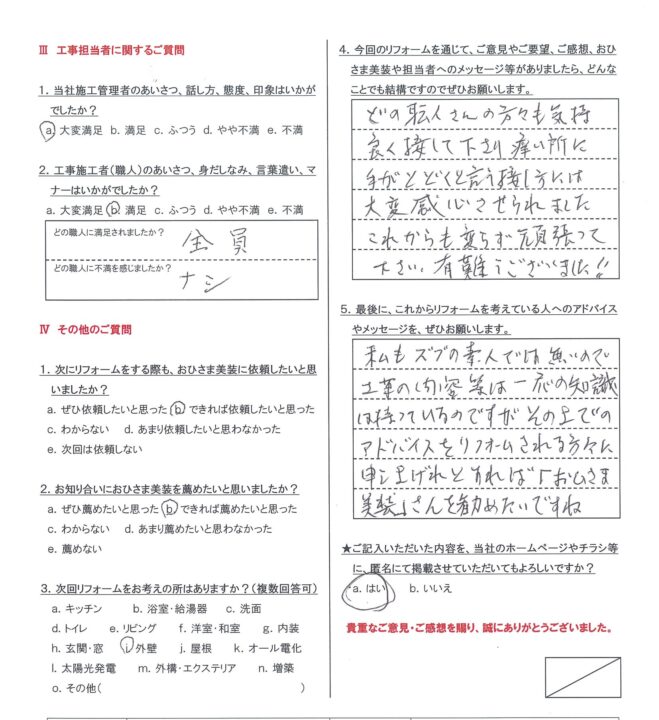 Ⅲ 工事担当者に関するご質問
1. 当社施工管理者のあいさつ、話し方、態度、印象はいかが
でしたか？
a. 大変満足 b. 満足 c. ふつう d. やや不満 e. 不満
2. 工事施工者（職人）のあいさつ、身だしなみ、言葉遣い、マ
ナーはいかがでしたか？
a. 大変満足 b. 満足 c. ふつう d. やや不満 e. 不満
どの職人に満足されましたか？ 全員
どの職人に不満を感じましたか？ ナシ
Ⅳ その他のご質問
1. 次にリフォームをする際も、おひさま美装に依頼したいと思
いましたか？
a. ぜひ依頼したいと思った b. できれば依頼したいと思った
c. わからない d. あまり依頼したいと思わなかった
e. 次回は依頼しない
2. お知り合いにおひさま美装を薦めたいと思いましたか？
a. ぜひ薦めたいと思った b. できれば薦めたいと思った
c. わからない d. あまり薦めたいと思わなかった
e. 薦めない
3. 次回リフォームをお考えの所はありますか？（複数回答可）
a. キッチン b. 浴室・給湯器 c. 洗面
d. トイレ e. リビング f. 洋室・和室 g. 内装
h. 玄関・窓 i. 外壁 j. 屋根 k. オール電化
l. 太陽光発電 m. 外構・エクステリア n. 増築
o. その他（ ）
4. 今回のリフォームを通じて、ご意見やご要望、ご感想、おひ
さま美装や担当者へのメッセージ等がありましたら、どんな
ことでも結構ですのでぜひお願いします。
どの転人さんの方々も気持
良く接して下さり痒い所に
手がとどくと言う接し方には
大変感心させられました
これからも変らず頑張って
下さい。有難うございました!!
5. 最後に、これからリフォームを考えている人へのアドバイス
やメッセージを、ぜひお願いします。
私もズブの素人では無いので
工事の内容等は一応の知識
は持っているのですがその上での
アドバイスをリフォームされる方々に
申し上げれとすれば「おひさま
美装」さんを勧めたいですね
★ご記入いただいた内容を、当社のホームページやチラシ等
に、匿名にて掲載させていただいてもよろしいですか？
a. はい b. いいえ
貴重なご意見・ご感想を賜り、誠にありがとうございました。